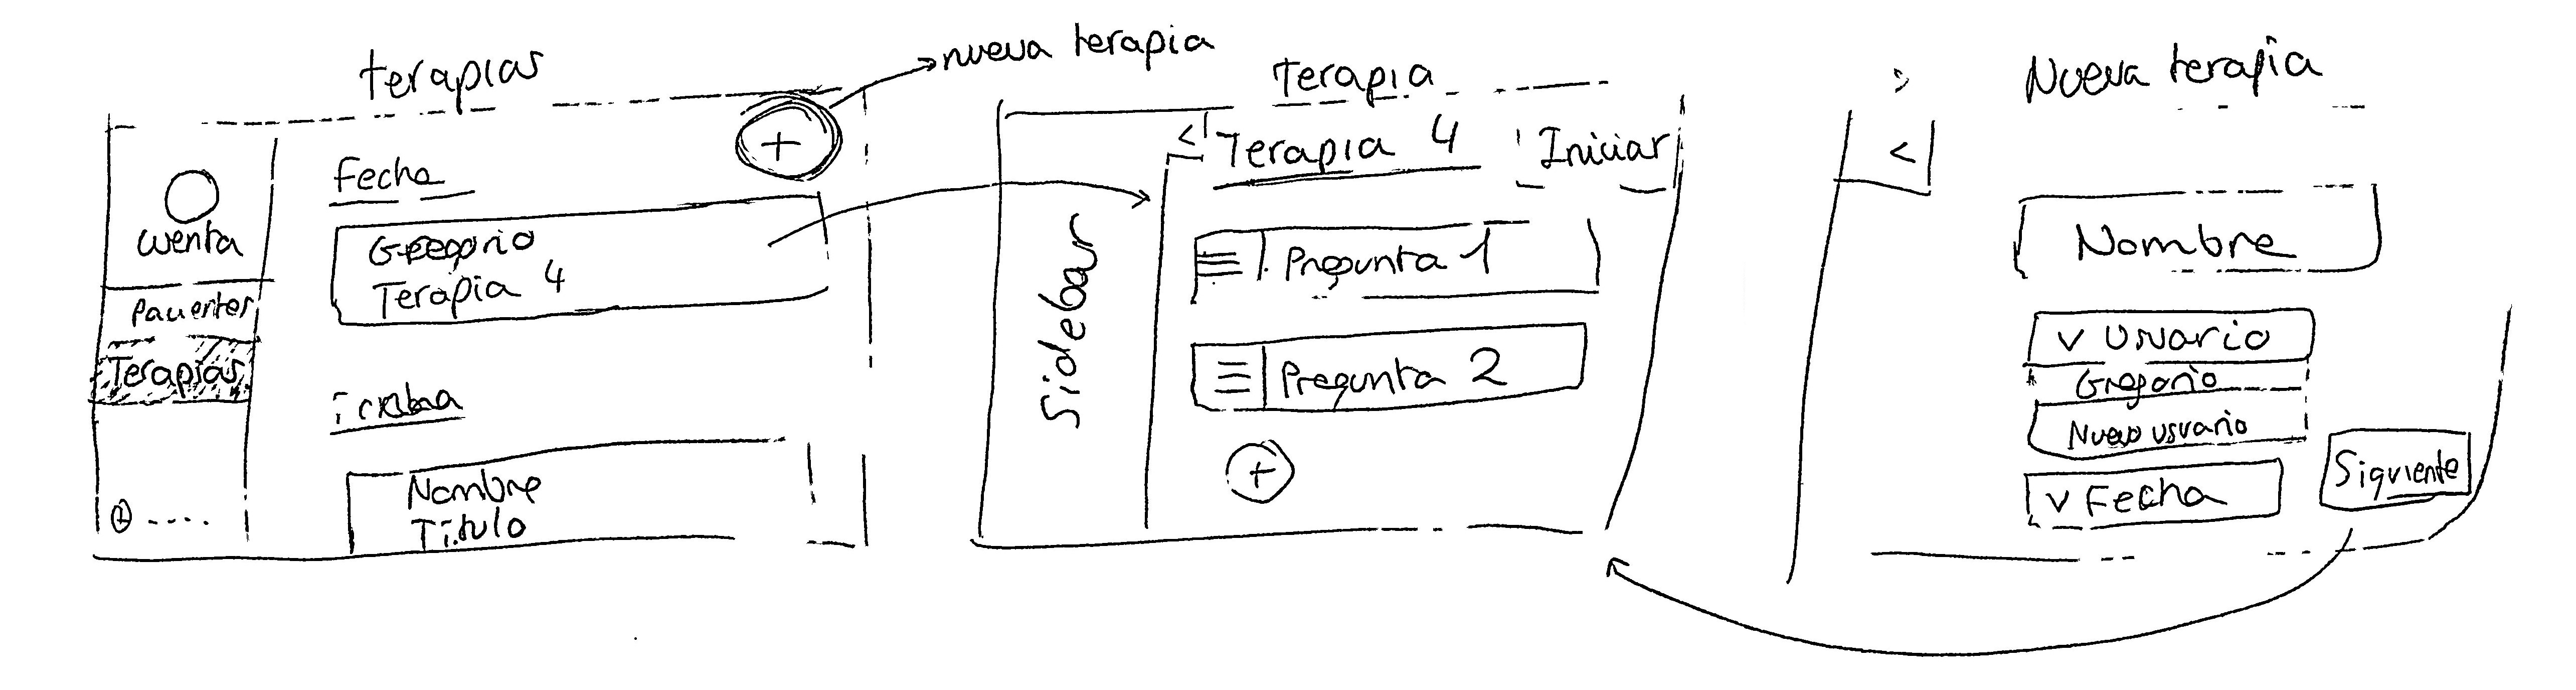 terapias
nueva terapia
+
Fecha
cuenta
Gregorio
Terapia 4
Pacientes
Terapias
Nombre
Título
+ ....
Terapia
<
Terapia 4
Iniciar
Sidebar
Pregunta 1
Pregunta 2
+
Nueva terapia
<
Nombre
v Usuario
Gregorio
Nuevo usuario
v Fecha
Siguiente